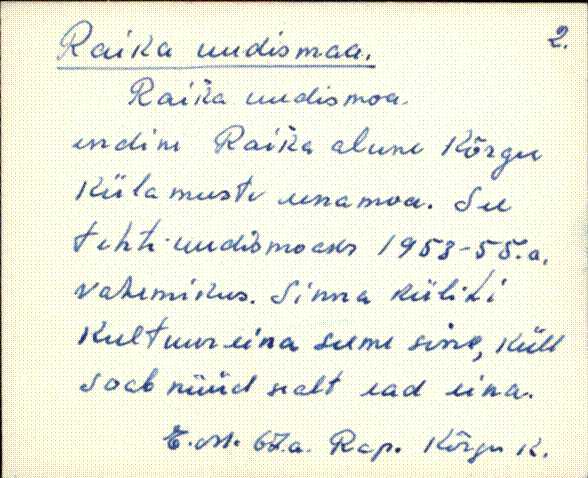 Raika uudismaa.
2.
Raika uudismoa.
endine Raika alune Kõrgu
Küla muste einamoa. See
tehti uudismoaks 1953-55.a.
vahemikus. Sinna küliti
Kultuureina seeme sine, küll
soab nüüd sealt ead eina.
67.a. Rap. Kõrgu k.